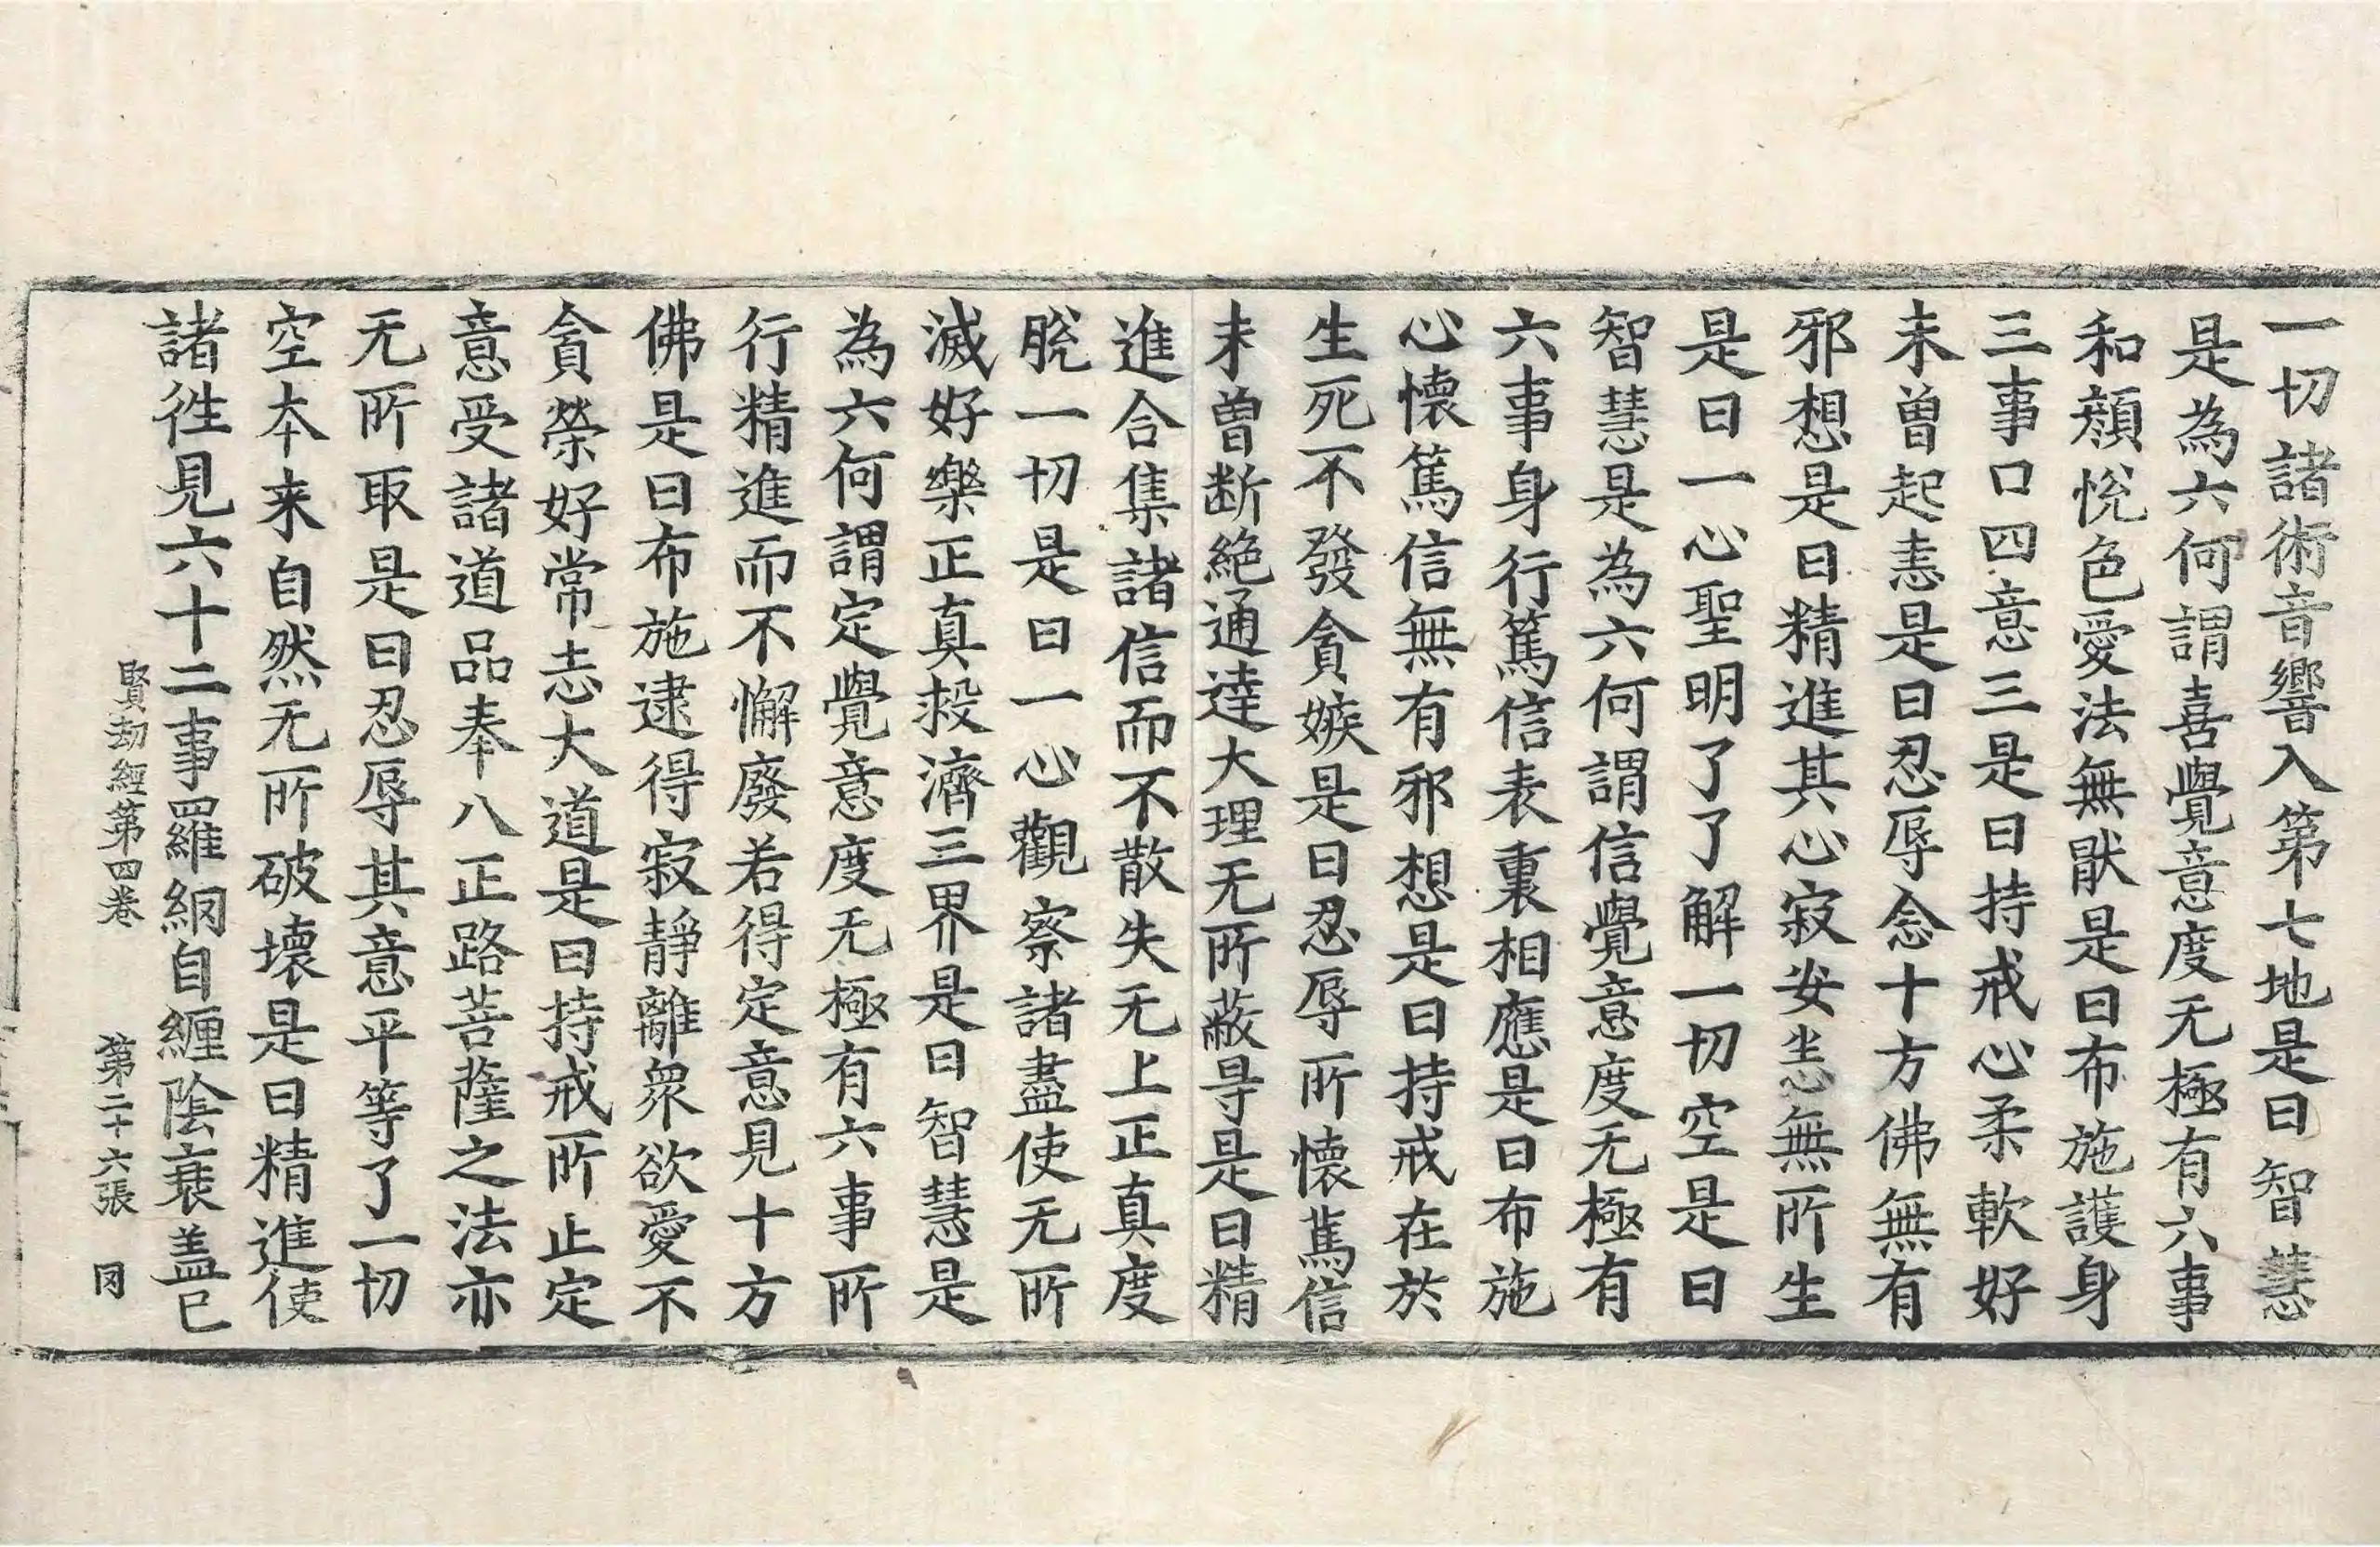 一切諸術音響入第七地是曰智慧
是為六何謂喜覺意度无極有六事
和顔悅色愛法無猒是曰布施護身
三事口四意三是曰持戒心柔軟好
未曾起恚是曰忍辱念十方佛無有
邪想是曰精進其心寂安恙無所生
是曰一心聖明了了解一切空是曰
智慧是為六何謂信覺意度无極有
六事身行篤信表裏相應是曰布施
心懷篤信無有邪想是曰持戒在於
生死不發貪嫉是曰忍辱所懷篤信
未曾断絶通達大理无所蔽㝵是曰精
進合集諸信而不散失无上正真度
脫一切是曰一心觀察諸盡使无所
滅好樂正真救濟三界是曰智慧是
為六何謂定覺意度无極有六事所
行精進而不懈廢若得定意見十方
佛是曰布施逮得寂靜離衆欲愛不
貪榮好常志大道是曰持戒所止定
意受諸道品奉八正路菩薩之法亦
无所取是曰忍辱其意平等了一切
空本来自然无所破壞是曰精進使
諸徃見六十二事羅網自纒陰衰盖已
賢劫經第四卷　第二十六張　冈